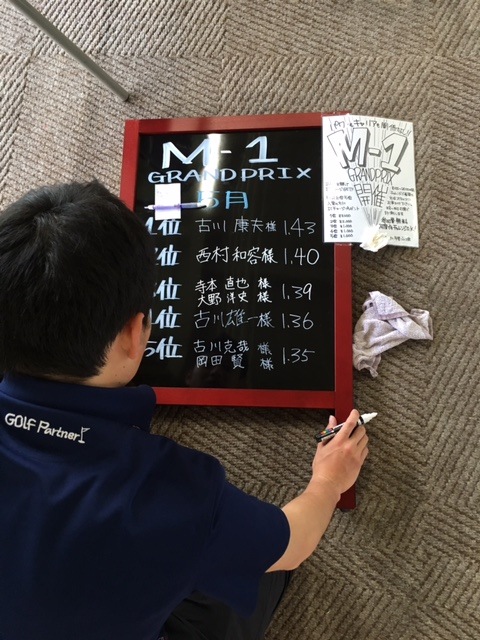 M-1
GRAND PRIX
5月
1位 古川 康夫様 1.43
位 西村和容様 1.40
3位 寺本 直也 様
大野 洋史 様 1.39
4位 古川雄一様 1.36
5位 古川克哉 様
岡田 賢 様 1.35
M-1
GRAND PRIX
開催
GOLF Partner